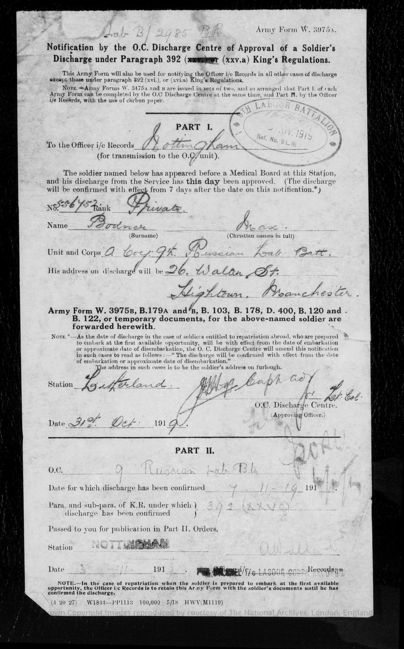 Lab B/ 2985 P.R.
Army Form W. 3975A.
Notification by the O.C. Discharge Centre of Approval of a Soldier's
Discharge under Paragraph 392 (xxv.a) King's Regulations.
This Army Form will also be used for notifying the Officer i/c Records in all other cases of discharge
except those under paragraph 392 (xvi.) or (xvia) King's Regulations.
NOTE.—Army Forms W. 3975A and B are issued in sets of two, and so arranged that Part I. of each
Army Form can be completed by the O.C. Discharge Centre at the same time, and Part II. by the Officer
i/c Records, with the use of carbon paper.
9TH LABOUR BATTALION
1919
Ref. No.
PART I.
To the Officer i/c Records Nottingham
(for transmission to the O.C. unit).
The soldier named below has appeared before a Medical Board at this Station,
and his discharge from the Service has this day been approved. (The discharge
will be confirmed with effect from 7 days after the date on this notification.*)
No. 886452 Rank Private
Name Bodner Max.
(Surname) (Christian names in full)
Unit and Corps A Coy 9th Russian Lab Batt.
His address on discharge will be 26. Walter St.
Hightown. Manchester.
Army Form W. 3975B, B.179A and B, B. 103, B. 178, D. 400, B. 120 and
B. 122, or temporary documents, for the above-named soldier are
forwarded herewith.
NOTE *—As the date of discharge in the case of soldiers entitled to repatriation abroad, who are prepared
to embark at the first available opportunity, will be with effect from the date of embarkation
or approximate date of disembarkation, the O. C. Discharge Centre will amend this notification
in such cases to read as follows:—"The discharge will be confirmed with effect from the date
of embarkation or approximate date of disembarkation."
The address in such cases is to be the soldier's address on furlough.
Station Litherland. Capt
for Lt. Col.
O.C. Discharge Centre.
(Approving Officer.)
Date 31st Oct. 1919.
PART II.
O.C. 9 Russian Lab Bn
Date for which discharge has been confirmed 7-11-19 191
Para. and sub-para. of K.R. under which
discharge has been confirmed } 392 (XXVa)
Passed to you for publication in Part II. Orders.
Station NOTTINGHAM
Date 3-11- 191 I/c LABOUR CORPS Records.
NOTE.—In the case of repatriation when the soldier is prepared to embark at the first available
opportunity, the Officer i/c Records is to retain this Army Form with the soldier's documents until he has
confirmed the discharge.
(4 20 27) W1844—PP1113 100,000 5/18 HWV(M1119)
Crown Copyright Images reproduced by courtesy of The National Archives, London, England